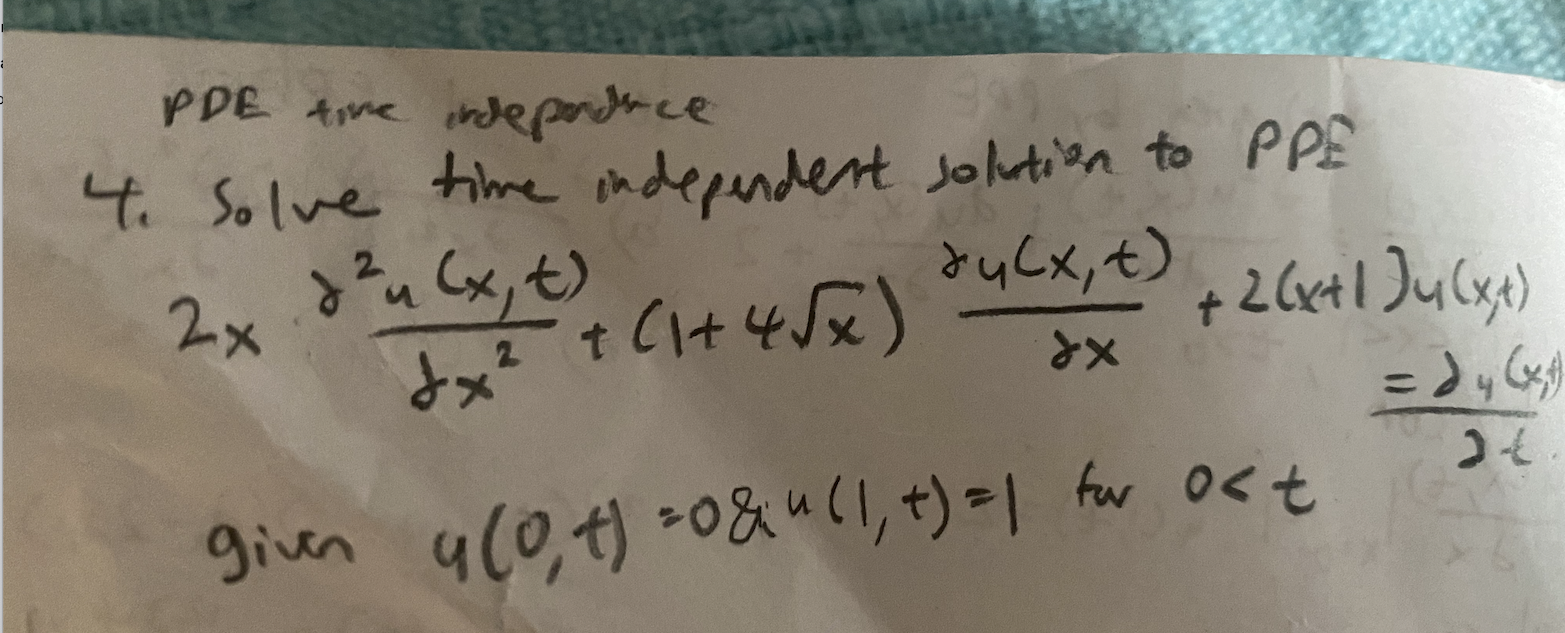 PDE time independence
4. Solve time independent solution to PDE
2x ∂²u(x,t)/∂x² + (1+4√x) ∂u(x,t)/∂x + 2(x+1)u(x,t)
= ∂u(x,t)/∂t
given u(0,t) =0 & u(1,t)=1 for 0<t